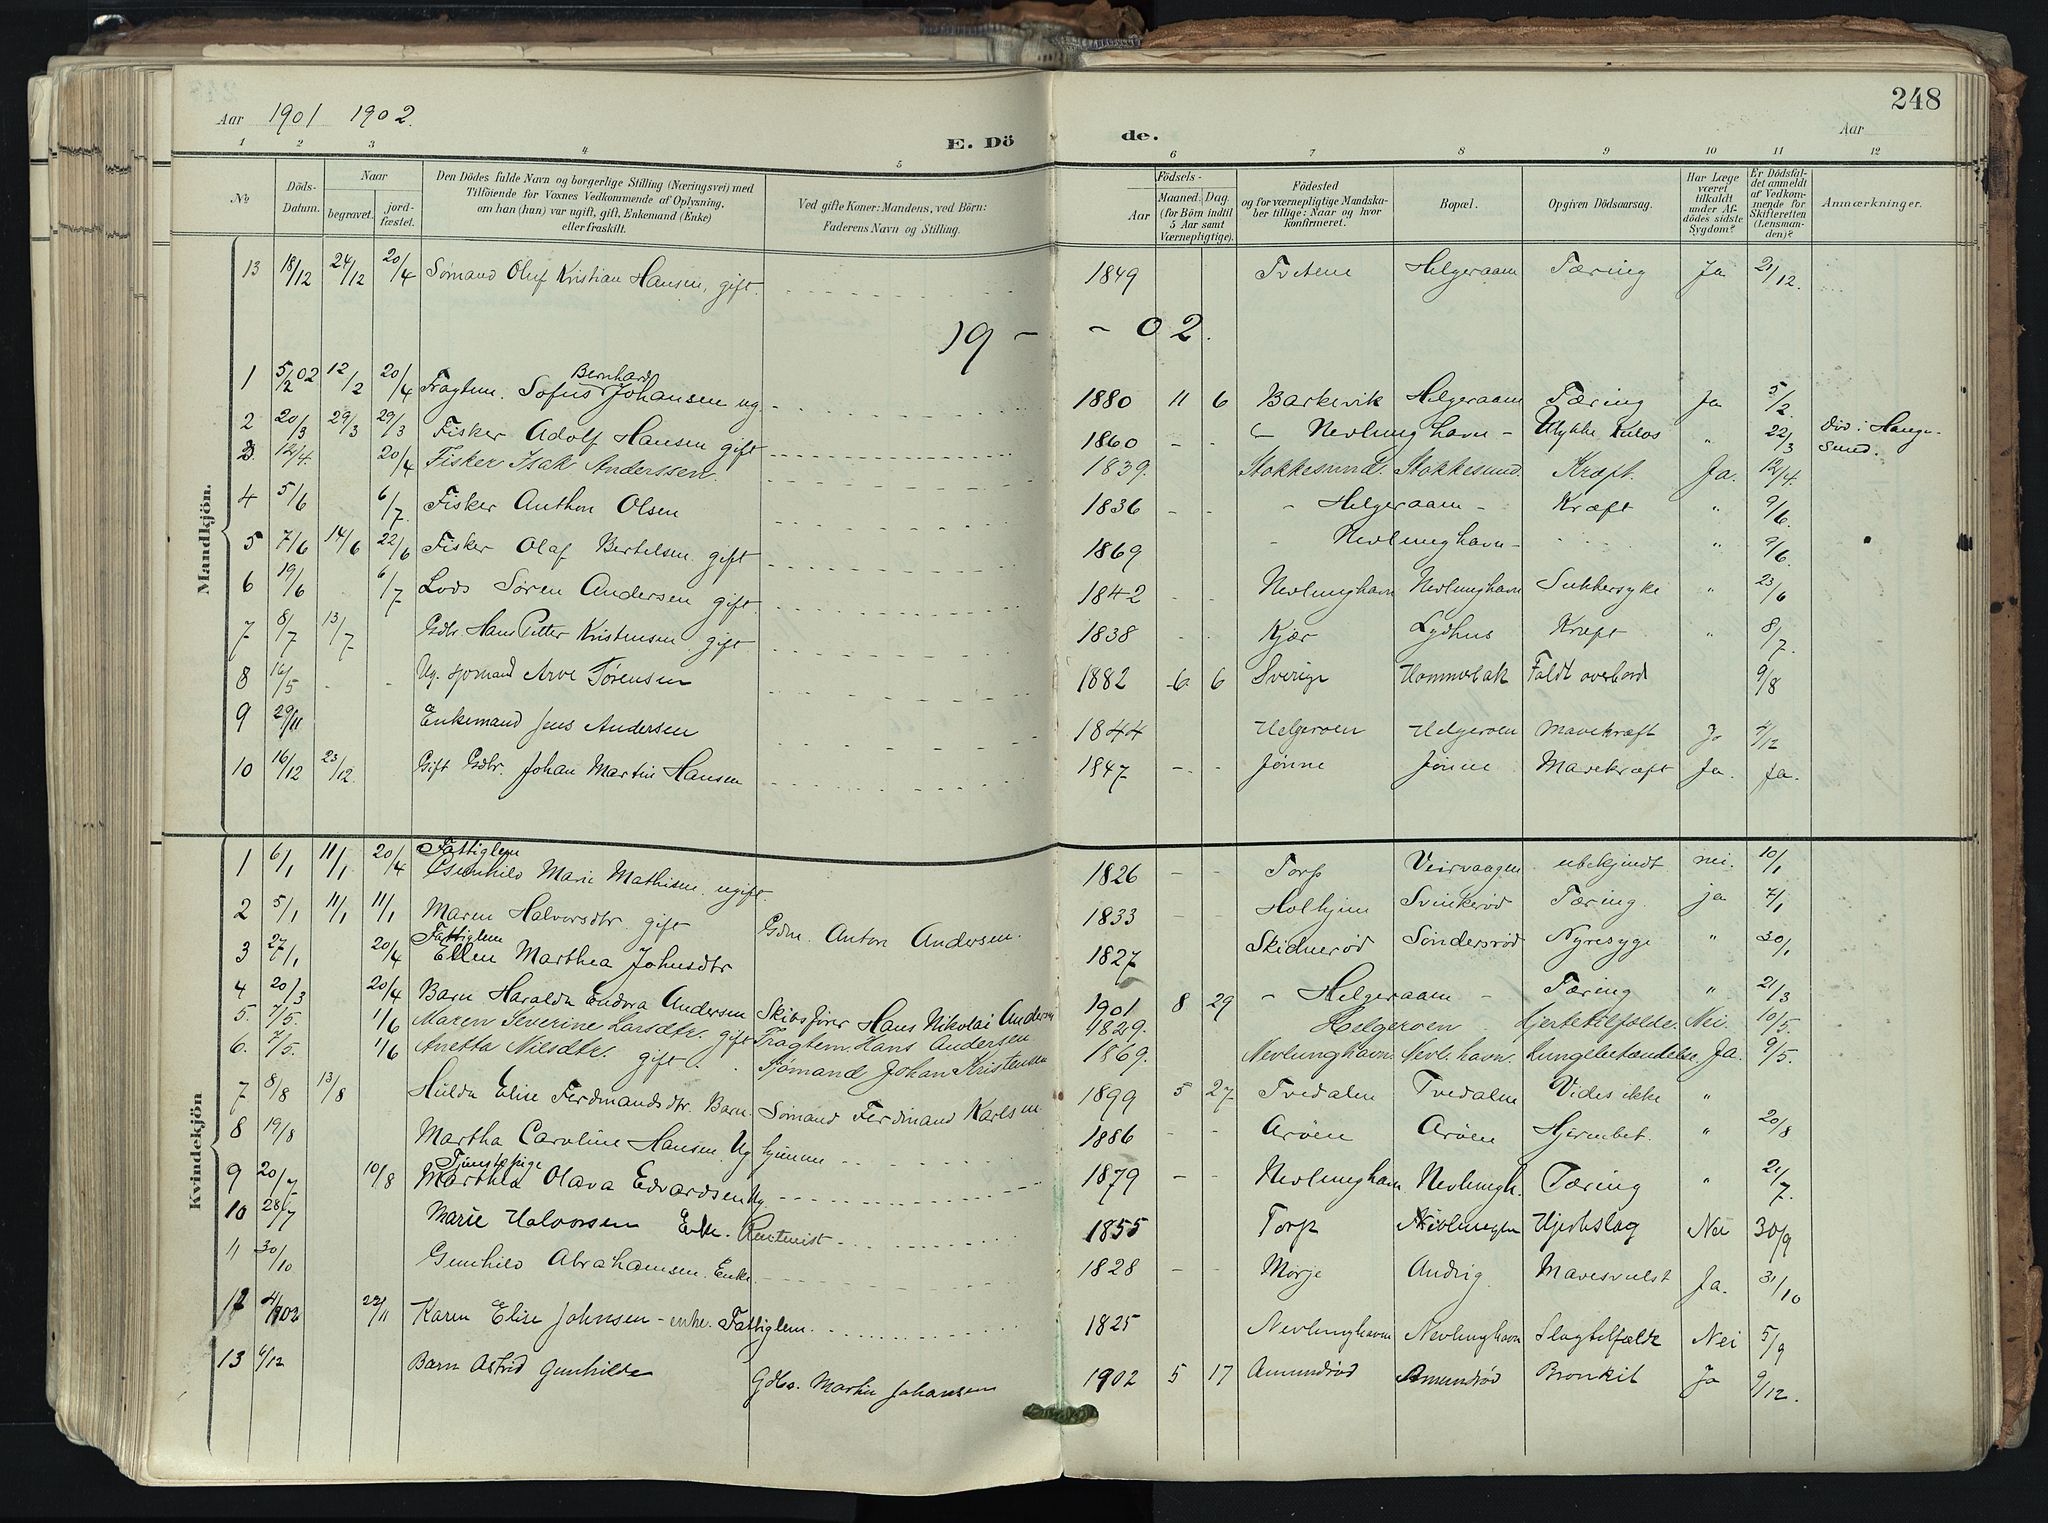 248
Aar 1901 1902.
E. Dö de.
Aar
1 2 3 4 5 6 7 8 9 10 11 12
No
Döds-Datum.
Naar
begravet.
jord-fæstet.
Den Dödes fulde Navn og borgerlige Stilling (Næringsvei) med
Tilföiende for Voxnes Vedkommende af Oplysning,
om han (hun) var ugift, gift, Enkemand (Enke)
eller fraskilt.
Ved gifte Koner: Mandens, ved Börn:
Faderens Navn og Stilling.
Födsels-
Aar
Maaned. Dag.
(for Börn indtil
5 Aar samt
Værnepligtige).
Födested
og for værnepligtige Mandska-
ber tillige: Naar og hvor
konfirmeret.
Bopæl.
Opgiven Dödsaarsag.
Har Læge
været
tilkaldt
under Af-
dödes sidste
Sygdom?
Er Dödsfal-
det anmeldt
af Vedkom-
mende for
Skifteretten
(Lensman-
den)?
Anmærkninger.
Mandkjön.
13 18/12 24/12 20/4 Sømand Oluf Kristian Hansen, gift. 1849 Tvetene Helgeraaen Tæring Ja 21/12.
19 - - 02.
1 5/2 02 12/2 20/4 Fragtem. Sofus Bernhard Johansen ug. 1880 11 6 Barkevik Helgeraaen Tæring Ja 5/2.
2 20/3 29/3 29/3 Fisker Adolf Hansen gift 1860 - - Nevlunghavn - Ulykke Kulos " 22/3 Död i Sund.
3. 12/4. 20/4 Fisker Isak Anderssen. 1839. Stokkesund. Stokkesund. Kræft. Ja. 12/4.
4 5/6 6/7. Fisker Anthon Olsen 1836 - - - Helgeraaen - Kræft " 9/6.
5 7/6 14/6 22/6 Fisker Olaf Bertelsen gift 1869 - Nevlunghavn - " 9/6.
6 19/6 6/7 Lods Søren Andersen gift. 1842 - - Nevlunghavn Nevlunghavn Sukkersyke " 23/6
7 8/7 13/7 Gdbr. Hans Petter Kristensen gift. 1838 - - Kjær Lydhus Kræft " 8/7.
8 16/5 - - Ug. sjömand Arve Törensen 1882 6 6 Sverige Hommerbak Faldt overbord 9/8
9 29/11 Enkemand Jens Andersen 1844 Helgeroen Helgeroen Mavekræft Ja 4/12
10 16/12 23/12. Gift Gdbr. Johan Martin Hansen 1847 - - Jønne Jønne Mavekræft Ja. Ja.
Kvindekjön
1 6/1 11/1 20/4 Fattiglem Gunhild Marie Mathisen ugift. 1826 - - Torp Veirvaagen ubekjendt nei. 10/1
2 5/1 11/1 11/1 Maren Halvorsdtr. gift Gdm. Anton Andersen. 1833 - - Holtjem Svinkeröd Tæring. ja 7/1
3 27/1 20/4 Fattiglem Ellen Marthea Johnsdtr 1827 Skidneröd Söndersröd Nyresyge " 30/1
4 20/3 20/4 Barn Haralda Endora Andersen Skibsfører Hans Nikolai Andersen 1901 8 29 - Helgeraaen - Tæring " 21/3
5. 7/5. 1/6 Maren Severine Larsdtr. gift Fragtem. Hans Andersen 1829. Helgeroen. Hjertetilfælde. Nei. 10/5.
6. 7/5. 1/6 Anetta Nilsdtr. gift. Sjømand Johan Kristensen 1869. Nevlunghavn. Nevl.havn. Lungebetændelse, Ja. 9/5.
7 8/8 13/8 Hulda Elise Ferdinandsdtr. Barn. Sømand Ferdinand Karlsen 1899 5 27 Tvedalen Tvedalen Vides ikke "
8 19/8 Martha Caroline Hansen. Ug hjemme 1886 - - Aröen Aröen Hjernebet. " 20/8
9 20/7 10/8 Tjenestepige Marthea Olava Edvardsen Ug. 1879 - - Nevlunghavn Nevlungh. Tæring " 21/7.
10 28/7 Marie Halvorsen Enke. Rentenist 1855 Torp Nevlunghn Hjerteslag Nei 30/9
11 30/10 Gunhild Abrahamsen. Enke. 1828 - - Mörje Andrig Mavesvulst Ja. 31/10
12 4/902 22/11 Karen Elise Johnsen - enke. Fattiglem. 1825 Nevlunghavn Nevlunghavn Slagtilfælde Nei 5/9
13 6/12 Barn Astrid Gunhilde Gdbr. Martin Johansen 1902 5 17 Amundröd Amundröd Bronkit Ja 9/12.